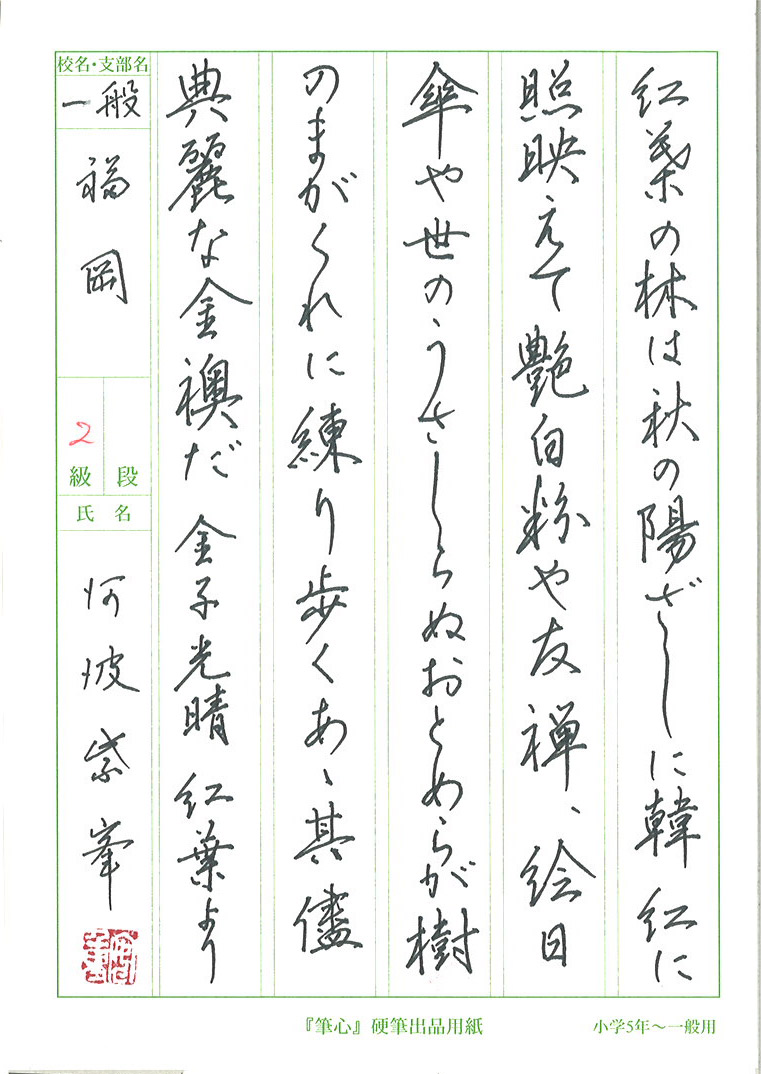 紅葉の林は秋の陽ざしに韓紅に
照映えて艶白粉や友禅、絵日
傘や世のうさしらぬおとめらが樹
のまがくれに練り歩くあゝ其儘
典麗な金襖だ 金子光晴 紅葉より
校名・支部名
一般
福岡
2
級 段
氏名
阿波紫峯
『筆心』硬筆出品用紙
小学5年～一般用